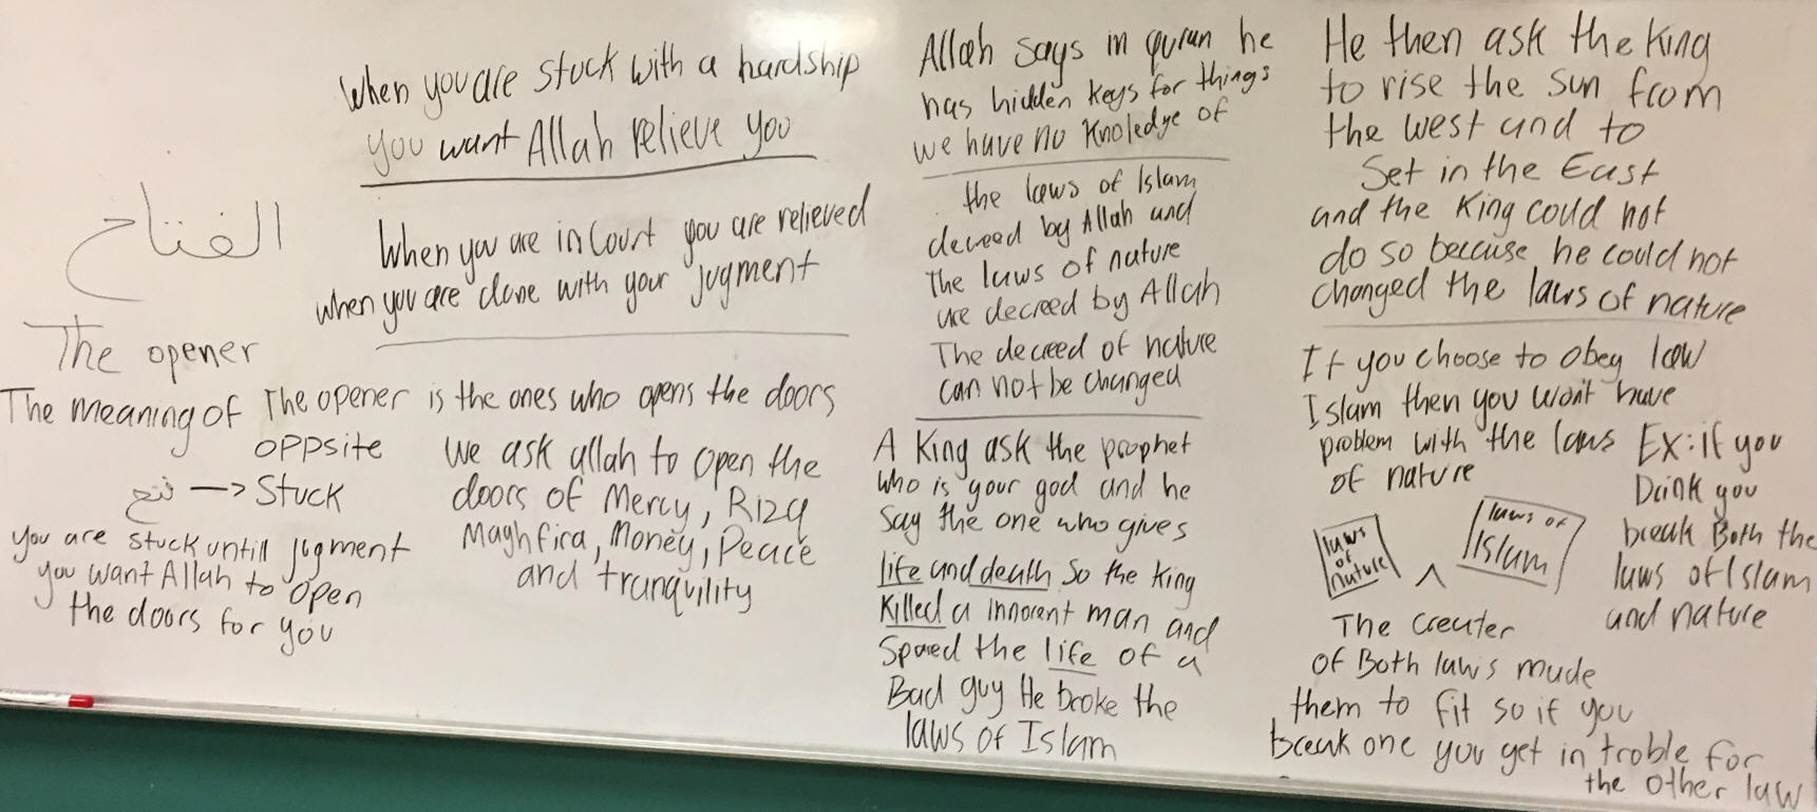 الفتاح
The opener
The meaning of The opener is the ones who opens the doors
oppsite
فتح → Stuck
you are stuck untill jugment
you want Allah to open
the doors for you
When you are stuck with a hardship
you want Allah relieve you
When you are in Court you are relieved
when you are done with your jugment
we ask allah to open the
doors of Mercy, Rizq
Maghfira, Money, Peace
and tranquility
Allah says in quran he
has hidden keys for things
we have no Knoledge of
the laws of Islam
deceed by Allah and
The laws of nature
are decreed by Allah
The decreed of nature
can not be changed
A King ask the prophet
who is your god and he
say the one who gives
life and death So the King
Killed a innocent man and
Spared the life of a
Bad guy He broke the
laws of Islam
He then ask the King
to rise the sun from
the west and to
Set in the East
and the King could not
do so because he could not
changed the laws of nature
If you choose to obey law
Islam then you won't have
problem with the laws
of nature
Ex: if you
Drink you
break Both the
laws of Islam
and nature
laws
of
nature
laws of
Islam
The creater
of Both laws made
them to fit so if you
break one you get in troble for
the other law